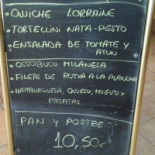 • QUICHE LORRAINE
• TORTELLINI NATA-PESTO
• ENSALADA DE TOMATE Y
ATUN
• OSSOBUCO MILANESA
• FILETE DE RUTIA A LA PLANCHA
• HAMBURGUESA, QUESO, HUEVO Y
PATATAS
PAN Y POSTRE
10,50